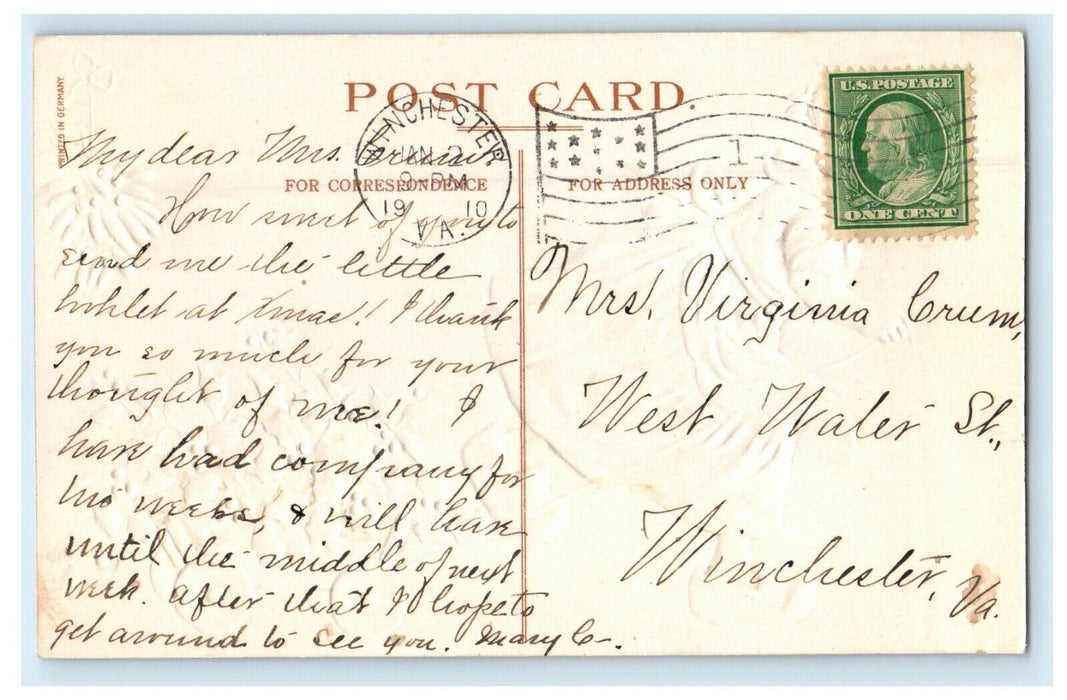 PRINTED IN GERMANY
POST CARD.
WINCHESTER
JAN 2
9-PM
19 10
VA.
1
U.S. POSTAGE
ONE CENT
FOR CORRESPONDENCE
FOR ADDRESS ONLY
My dear Mrs. Crum
How sweet of you to
send me the little
booklet at Xmas! I thank
you so much for your
thought of me! I
have had company for
two weeks, & will have
until the middle of next
week. After that I hope to
get around to see you. Mary C-.
Mrs. Virginia Crum,
West Water St.,
Winchester, Va.